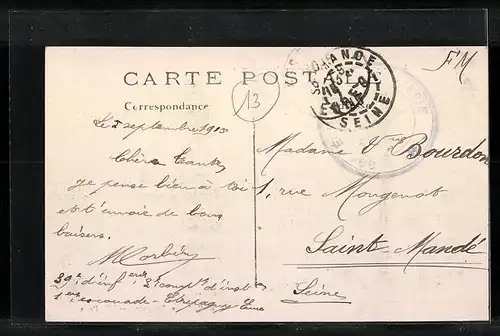 FM
CARTE POSTALE
Correspondance
13
SEINE
Le 5 septembre 1915
Chère Tante,
Je pense bien à toi
et t'envoie de bons
baisers.
MCorbin
39e d'inf
1ère escouade - Etrepagny Eure
Madame Vve Bourdon
1, rue Mongenot
Saint-Mandé
Seine